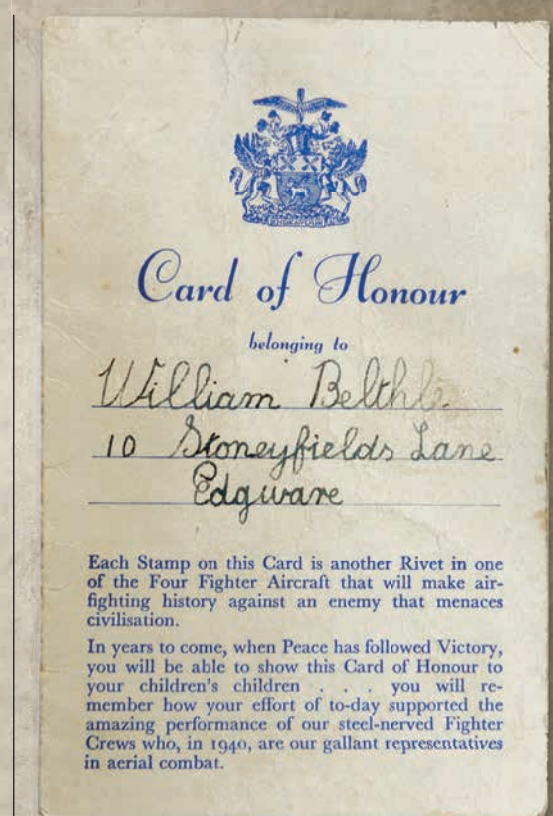 Card of Honour
belonging to
William
10 Stoneyfields Lane
Edgware
Each Stamp on this Card is another Rivet in one
of the Four Fighter Aircraft that will make air-
fighting history against an enemy that menaces
civilisation.
In years to come, when Peace has followed Victory,
you will be able to show this Card of Honour to
your children's children . . . you will re-
member how your effort of to-day supported the
amazing performance of our steel-nerved Fighter
Crews who, in 1940, are our gallant representatives
in aerial combat.